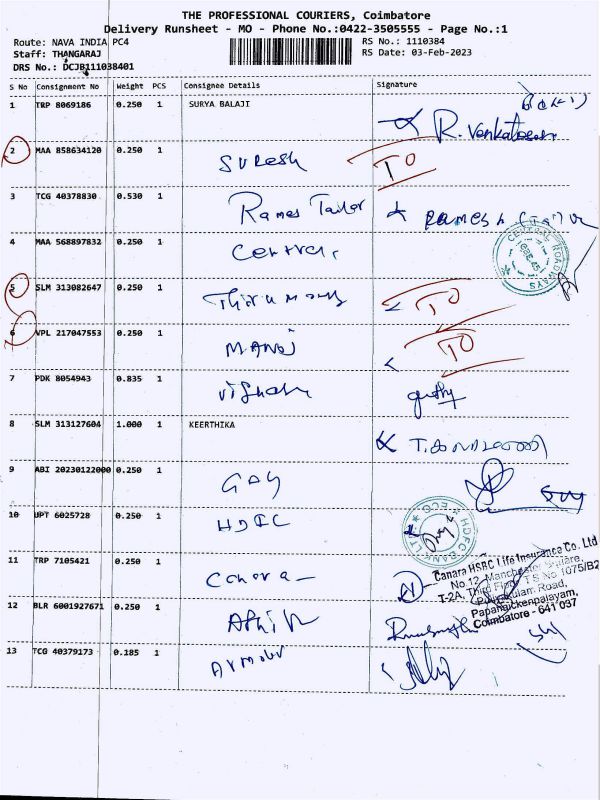 THE PROFESSIONAL COURIERS, Coimbatore
Delivery Runsheet - MO - Phone No.:0422-3505555 - Page No.:1
Route: NAVA INDIA PC4
RS No.: 1110384
Staff: THANGARAJ
RS Date: 03-Feb-2023
DRS No.: DCJB111038401
S No Consignment No Weight PCS Consignee Details Signature
1 TRP 8069186 0.250 1 SURYA BALAJI
R. Venkatesan
2 MAA 858634120 0.250 1 Suresh TO
3 TCG 40378830 0.530 1 Rames Tailor RAMESH
4 MAA 568897832 0.250 1 Central
CENTRAL ROADWAYS
5 SLM 313082647 0.250 1 TO
6 VPL 217047553 0.250 1 MANOJ TO
7 PDK 8054943 0.835 1
8 SLM 313127604 1.000 1 KEERTHIKA
9 ABI 20230122000 0.250 1
10 UPT 6025728 0.250 1 HDFC
HDFC BANK LTD
11 TRP 7105421 0.250 1 Canara
Canara HSBC Life Insurance Co. Ltd
No.12, Manchester Square,
T-2A, Third Floor, T S No 1075/B2
Road,
Papanaickenpalayam,
Coimbatore - 641 037
12 BLR 6001927671 0.250 1
13 TCG 40379173 0.185 1